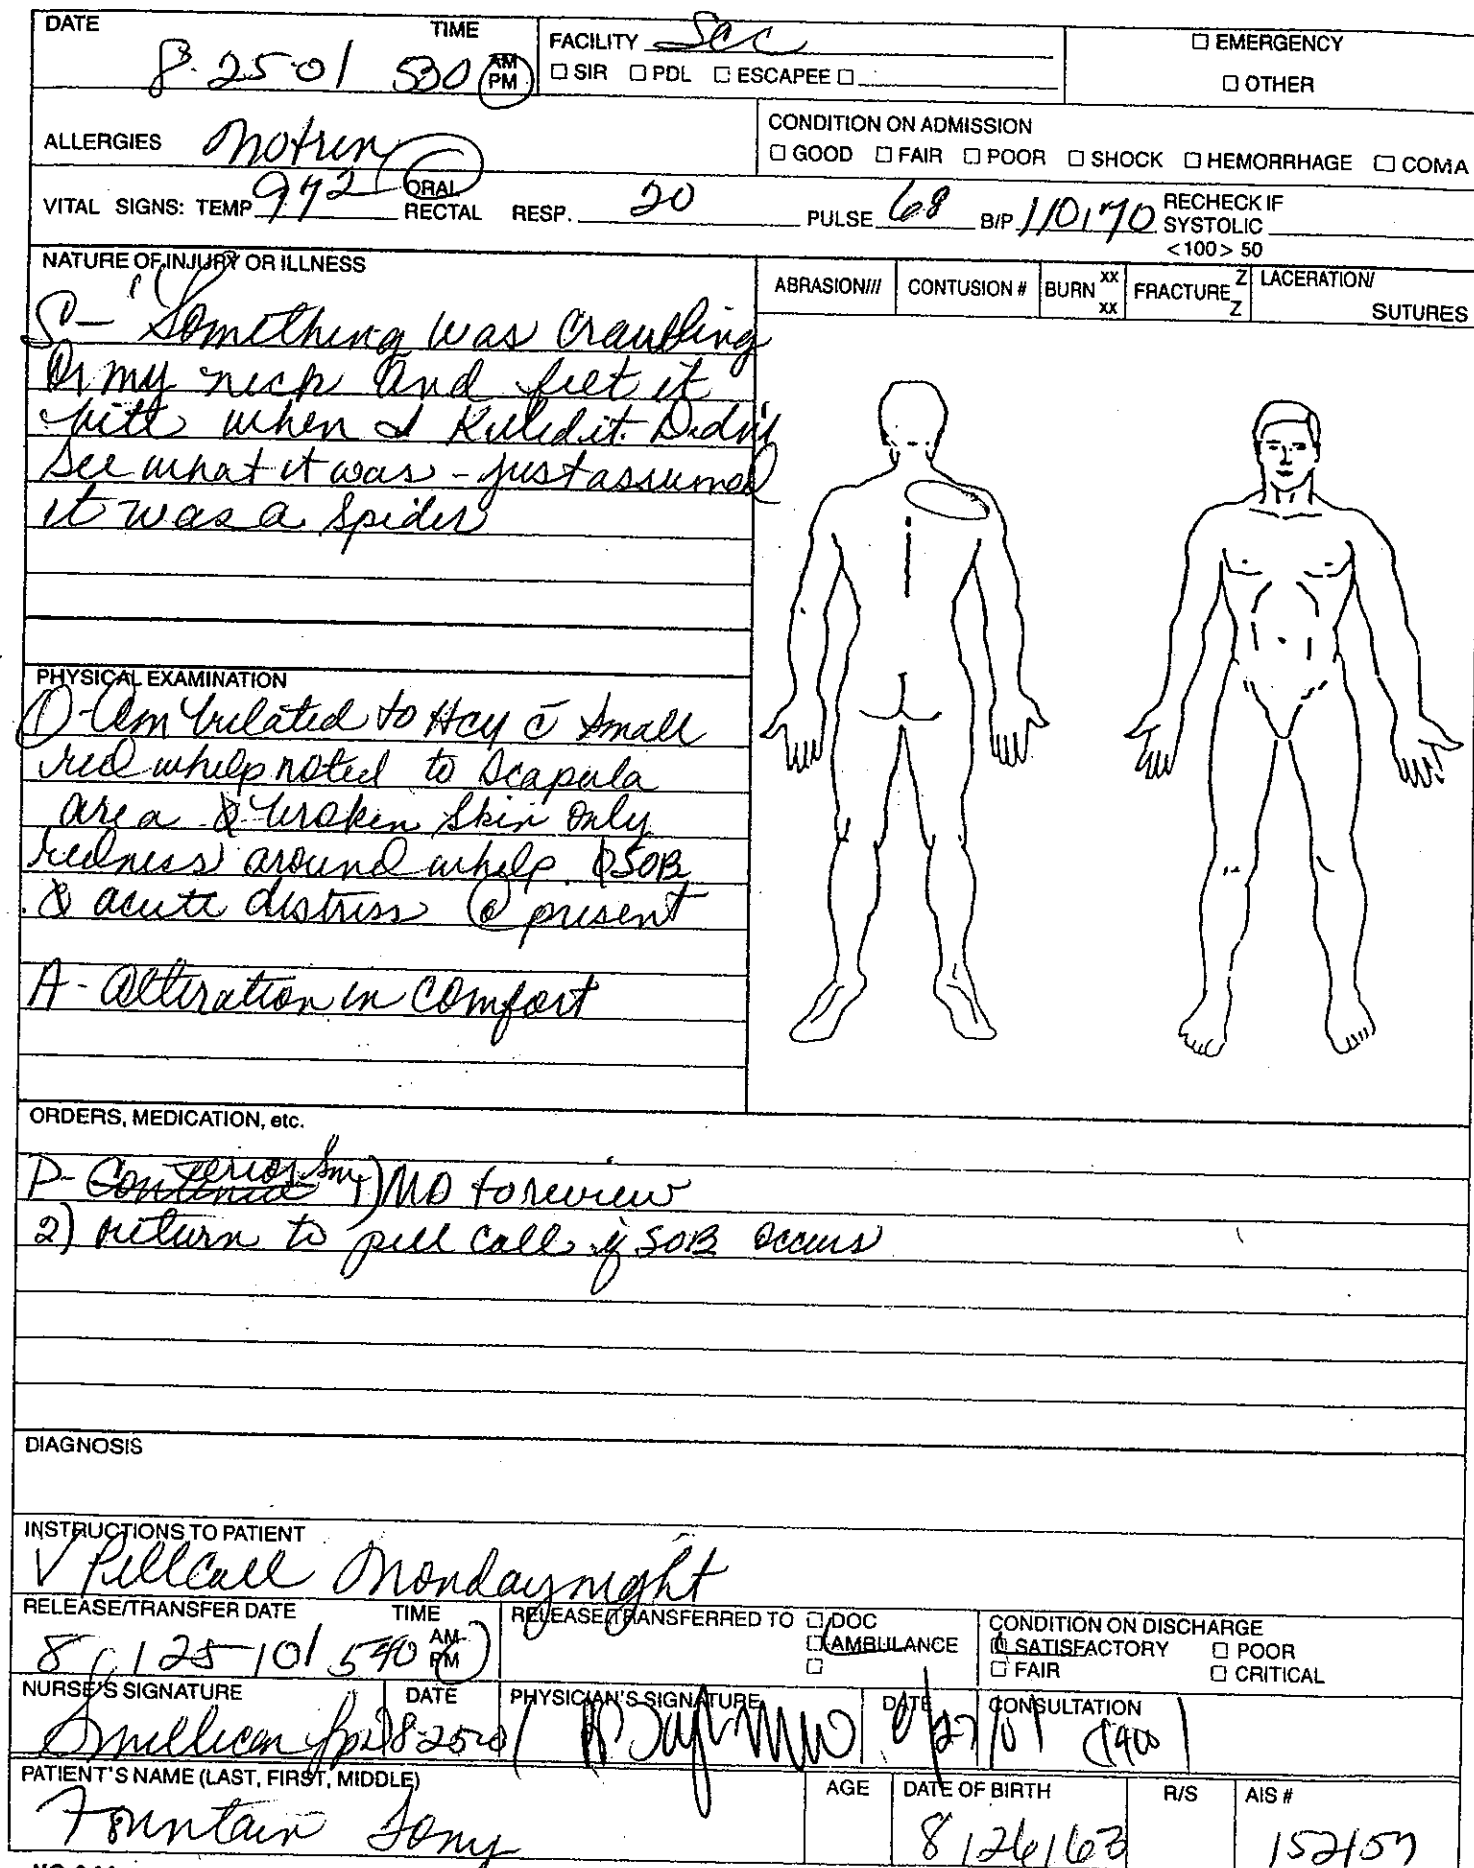 DATE TIME FACILITY SCC ☐ EMERGENCY
8-25-01 530 AM PM ☐ SIR ☐ PDL ☐ ESCAPEE ☐ ☐ OTHER
ALLERGIES Motrin CONDITION ON ADMISSION
☐ GOOD ☐ FAIR ☐ POOR ☐ SHOCK ☐ HEMORRHAGE ☐ COMA
VITAL SIGNS: TEMP 972 ORAL RECTAL RESP. 20 PULSE 68 B/P 110/70 RECHECK IF SYSTOLIC <100> 50
NATURE OF INJURY OR ILLNESS
ABRASION/// CONTUSION # BURN xx xx FRACTURE Z Z LACERATION/ SUTURES
S- "Something was crawling
on my neck and felt it
bite when I killed it. Didn't
see what it was - just assumed
it was a spider
PHYSICAL EXAMINATION
O- Ambulated to HCU c̄ small
red whelp noted to scapula
area Ø broken skin only
redness around whelp. Ø SOB
Ø acute distress @ present
A- alteration in comfort
ORDERS, MEDICATION, etc.
P- 1) MD to review
2) return to pill call if SOB occurs
DIAGNOSIS
INSTRUCTIONS TO PATIENT
√ Pill Call Monday night
RELEASE/TRANSFER DATE TIME RELEASE/TRANSFERRED TO ☐ DOC CONDITION ON DISCHARGE
8/25/01 540 AM PM ☐ AMBULANCE ☐ SATISFACTORY ☐ POOR
☐ ☐ FAIR ☐ CRITICAL
NURSE'S SIGNATURE DATE PHYSICIAN'S SIGNATURE DATE CONSULTATION
Smellican lpn 8-25-01 8/27/01 1400
PATIENT'S NAME (LAST, FIRST, MIDDLE) AGE DATE OF BIRTH R/S AIS #
Fountain Tony 8/26/63 152157